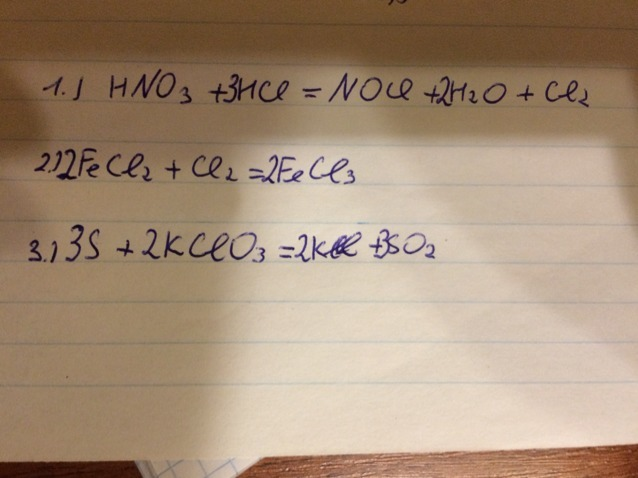 1.) HNO₃ + 3HCl = NOCl + 2H₂O + Cl₂
2.) 2FeCl₂ + Cl₂ = 2FeCl₃
3.) 3S + 2KClO₃ = 2KCl + 3SO₂